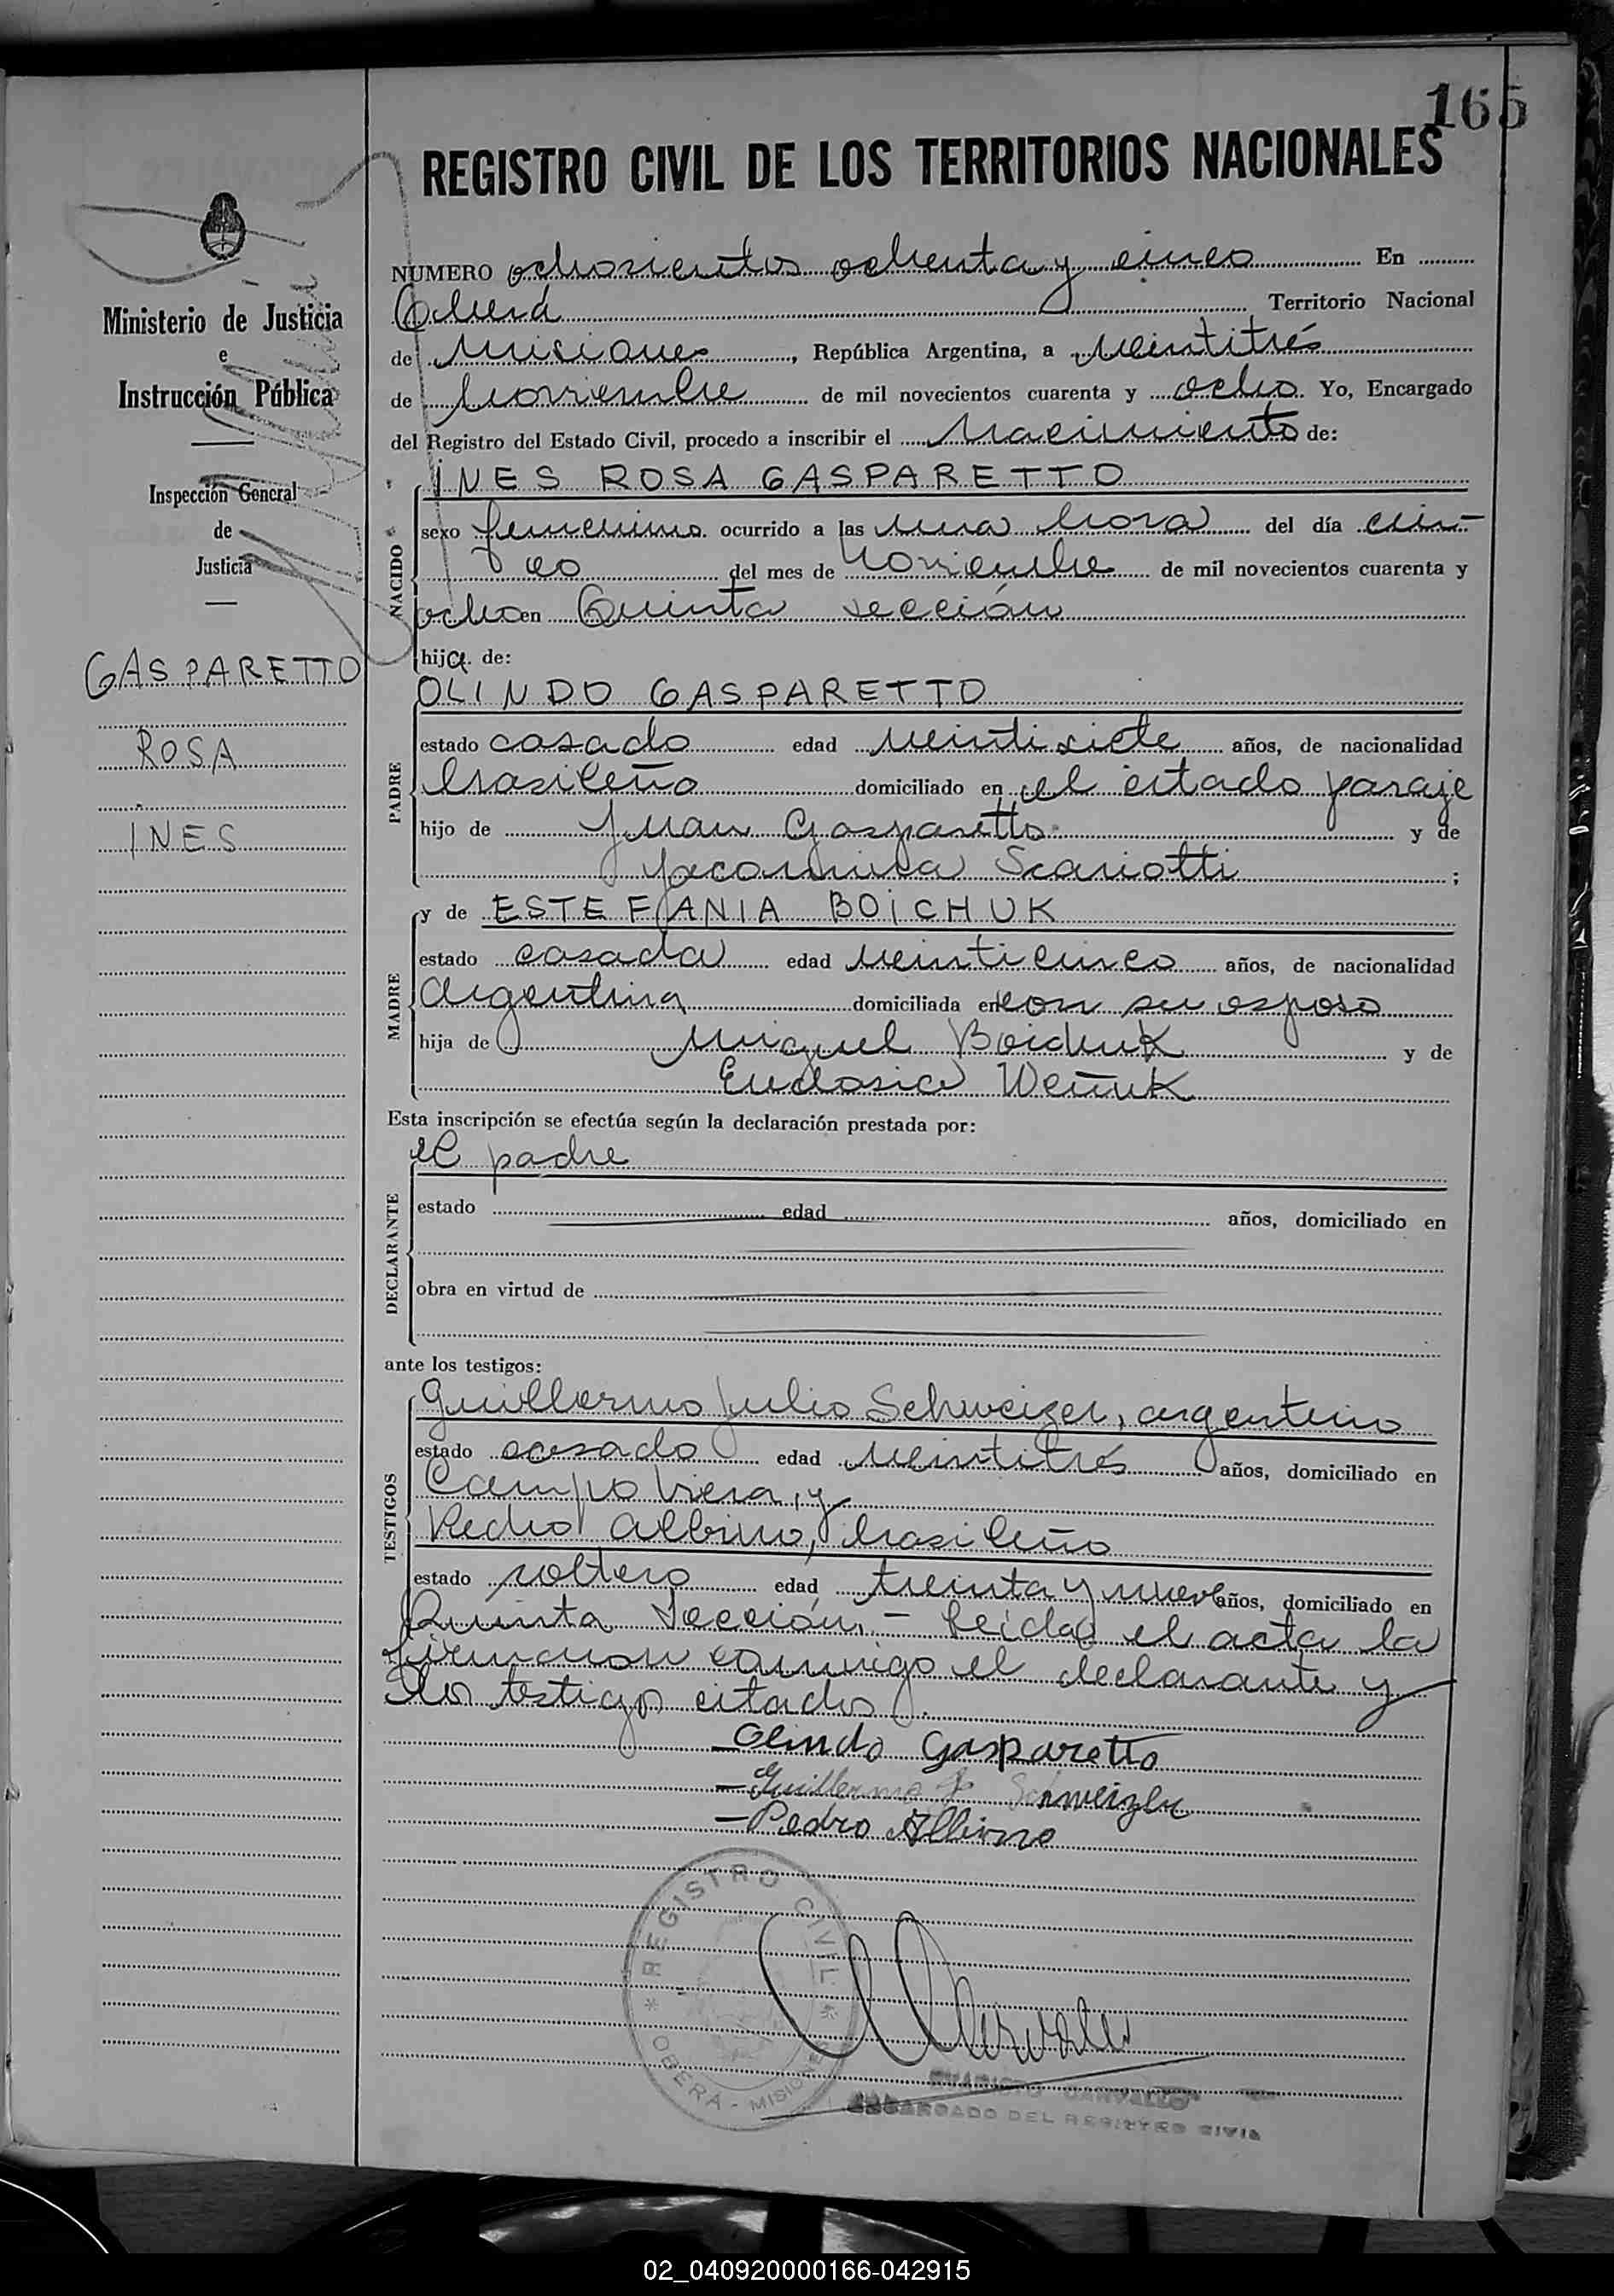 165
REGISTRO CIVIL DE LOS TERRITORIOS NACIONALES
Ministerio de Justicia
e
Instrucción Pública
Inspección General
de
Justicia
GASPARETTO
ROSA
INES
NUMERO ochosientos ochenta y cinco En
Oberá Territorio Nacional
de Misiones, República Argentina, a veintitrés
de Noviembre de mil novecientos cuarenta y ocho. Yo, Encargado
del Registro del Estado Civil, procedo a inscribir el Nacimiento de:
INES ROSA GASPARETTO
NACIDO
sexo femenino. ocurrido a las una hora del día cin-
co del mes de Noviembre de mil novecientos cuarenta y
ocho en Quinta sección
hija. de:
OLINDO GASPARETTO
PADRE
estado casado edad veintisiete años, de nacionalidad
brasileño domiciliado en el citado paraje
hijo de Juan Gasparetto y de
Yacomina Scariotti ;
y de ESTEFANIA BOICHUK
MADRE
estado casada edad veinticinco años, de nacionalidad
Argentina domiciliada en con su esposo
hija de Miguel Boichuk y de
Eudosia Weñuk
Esta inscripción se efectúa según la declaración prestada por:
el padre
DECLARANTE
estado edad años, domiciliado en
obra en virtud de
ante los testigos:
TESTIGOS
Guillermo Julio Schweizer, argentino
estado casado edad veintitrés años, domiciliado en
Campo Viera, y
Pedro Albino, brasileño
estado soltero edad treinta y nueve años, domiciliado en
Quinta Sección.- Leída el acta la
firmaron conmigo el declarante y
los testigos citados.
Olindo Gasparetto
Guillermo J. Schweizer
Pedro Albino
REGISTRO CIVIL
OBERA - MISIONES
CARVALLO
ENCARGADO DEL REGISTRO CIVIL
02_040920000166-042915